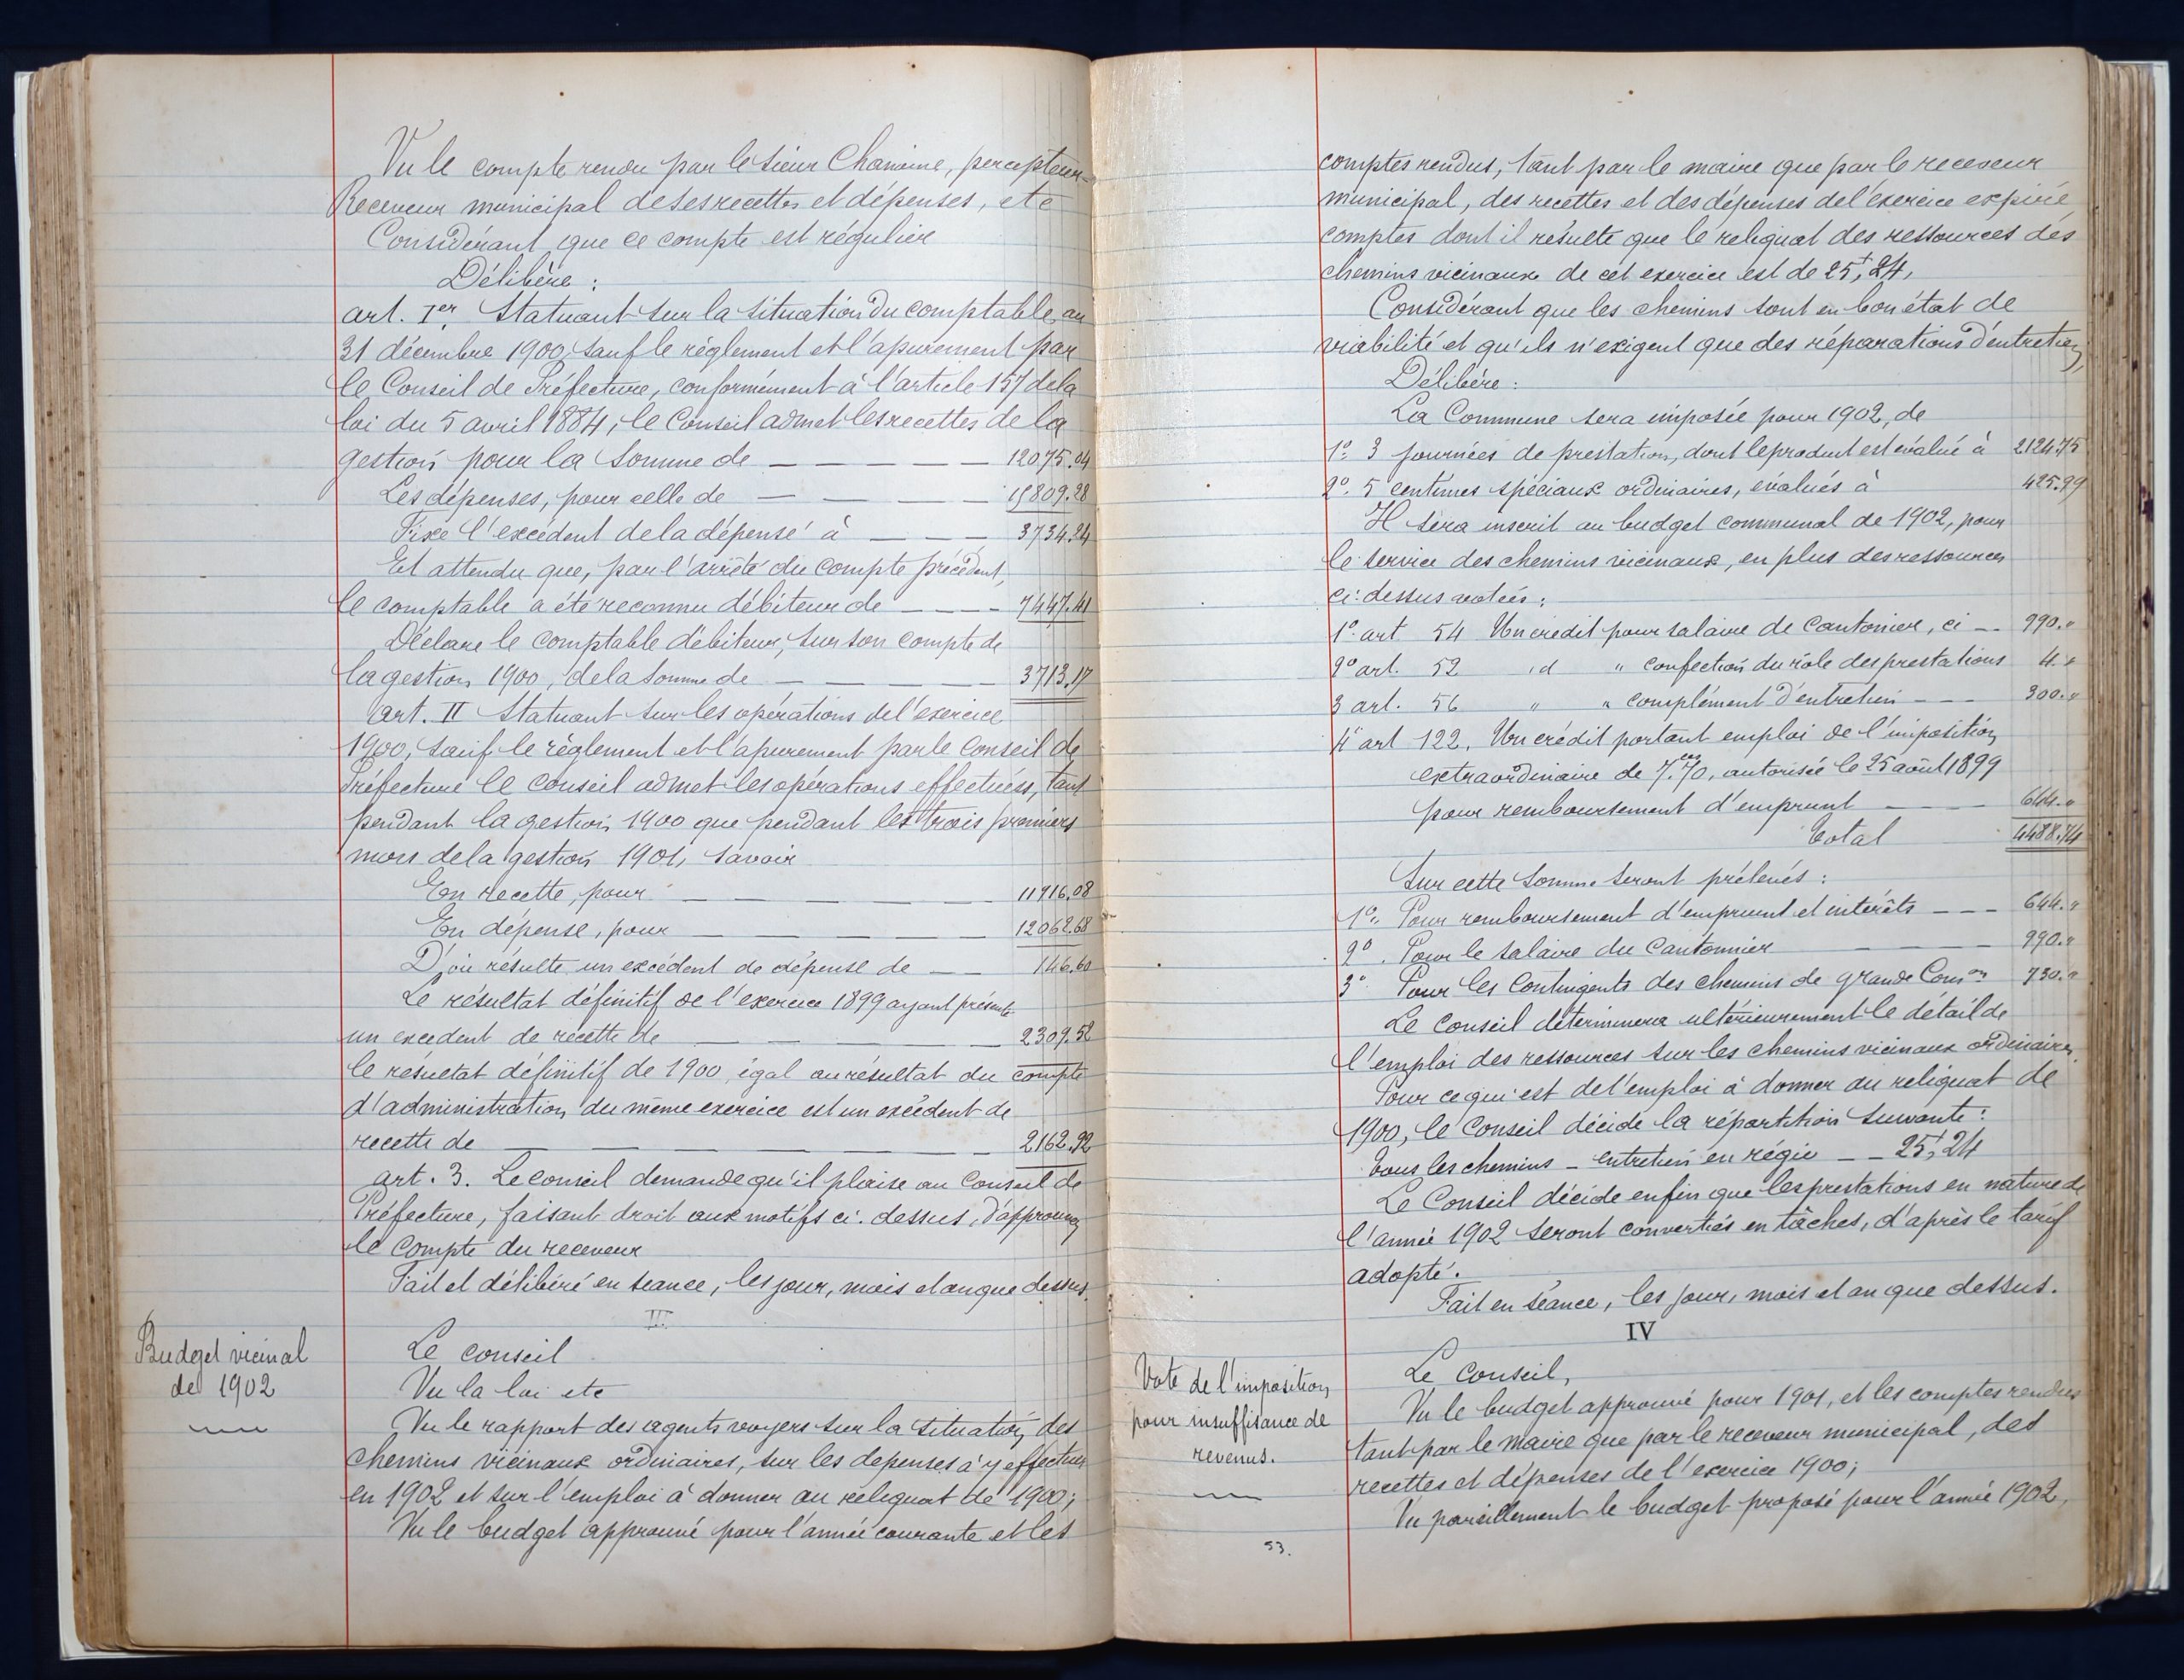 Vu le compte rendu par le sieur Chanoine, percepteur-
Receveur municipal de ses recettes et dépenses, etc
Considérant que ce compte est régulier
Délibère :
art. Ier. Statuant sur la situation du comptable au
31 décembre 1900, sauf le règlement et l'apurement par
le Conseil de Préfecture, conformément à l'article 157 de la
loi du 5 avril 1884, le Conseil admet les recettes de la
gestion pour la somme de — — — — — 12075.04
Les dépenses, pour celle de — — — — 15809.28
Fixe l'excédent de la dépense à — — — 3734.24
Et attendu que, par l'arrêté du compte précédent,
le comptable a été reconnu débiteur de — — — 7447.41
Déclare le comptable débiteur, sur son compte de
la gestion 1900, de la somme de — — — — 3713.17
art. II Statuant sur les opérations de l'exercice
1900, sauf le règlement et l'apurement par le Conseil de
Préfecture le Conseil admet les opérations effectuées, tant
pendant la gestion 1900 que pendant les trois premiers
mois de la gestion 1901, savoir
En recette, pour — — — — — 11916.08
En dépense, pour — — — — — 12062.68
D'où résulte un excédent de dépense de — — 146.60
Le résultat définitif de l'exercice 1899 ayant présenté
un excédent de recette de — — — — 2309.52
le résultat définitif de 1900, égal au résultat du compte
d'administration du même exercice est un excédent de
recette de — — — — — — 2162.92
art. 3. Le conseil demande qu'il plaise au Conseil de
Préfecture, faisant droit aux motifs ci-dessus, d'approuver
le compte du receveur
Fait et délibéré en séance, les jour, mois et an que dessus.
III
Budget vicinal
de 1902
Le conseil
Vu la loi etc
Vu le rapport des agents voyers sur la situation des
chemins vicinaux ordinaires, sur les dépenses à y effectuer
en 1902 et sur l'emploi à donner au reliquat de 1900 ;
Vu le budget approuvé pour l'année courante et les
comptes rendus, tant par le maire que par le receveur
municipal, des recettes et des dépenses de l'exercice expiré
comptes dont il résulte que le reliquat des ressources des
chemins vicinaux de cet exercice est de 25f,24,
Considérant que les chemins sont en bon état de
viabilité et qu'ils n'exigent que des réparations d'entretien,
Délibère :
La Commune sera imposée pour 1902, de
1º. 3 journées de prestation, dont le produit est évalué à 2124.75
2º. 5 centimes spéciaux ordinaires, évalués à 425.99
Il sera inscrit au budget communal de 1902, pour
le service des chemins vicinaux, en plus des ressources
ci-dessus votées :
1º. art 54 Un crédit pour salaire de Cantonier, ci — 990."
2º art. 52 id " confection du rôle des prestations 4."
3 art. 56 " " complément d'entretien — — 300."
4º art 122. Un crédit portant emploi de l'imposition
extraordinaire de 7.ces70, autorisée le 25 août 1899
pour remboursement d'emprunt — — — 644."
Total 4488.74
Sur cette somme seront prélevés :
1º. Pour remboursement d'emprunt et intérêts — — — 644."
2º. Pour le salaire du Cantonnier — — — 990."
3º Pour les Contingents des chemins de grande Com.on 730."
Le Conseil déterminera ultérieurement le détail de
l'emploi des ressources sur les chemins vicinaux ordinaires.
Pour ce qui est de l'emploi à donner au reliquat de
1900, le Conseil décide la répartition suivante :
Tous les chemins — entretien en régie — — 25f,24
Le Conseil décide enfin que les prestations en nature de
l'année 1902 seront converties en tâches, d'après le tarif
adopté.
Fait en séance, les jour, mois et an que dessus.
IV
Vote de l'imposition
pour insuffisance de
revenus.
Le Conseil,
Vu le budget approuvé pour 1901, et les comptes rendus
tant par le maire que par le receveur municipal, des
recettes et dépenses de l'exercice 1900 ;
Vu pareillement le budget proposé pour l'année 1902,
53.